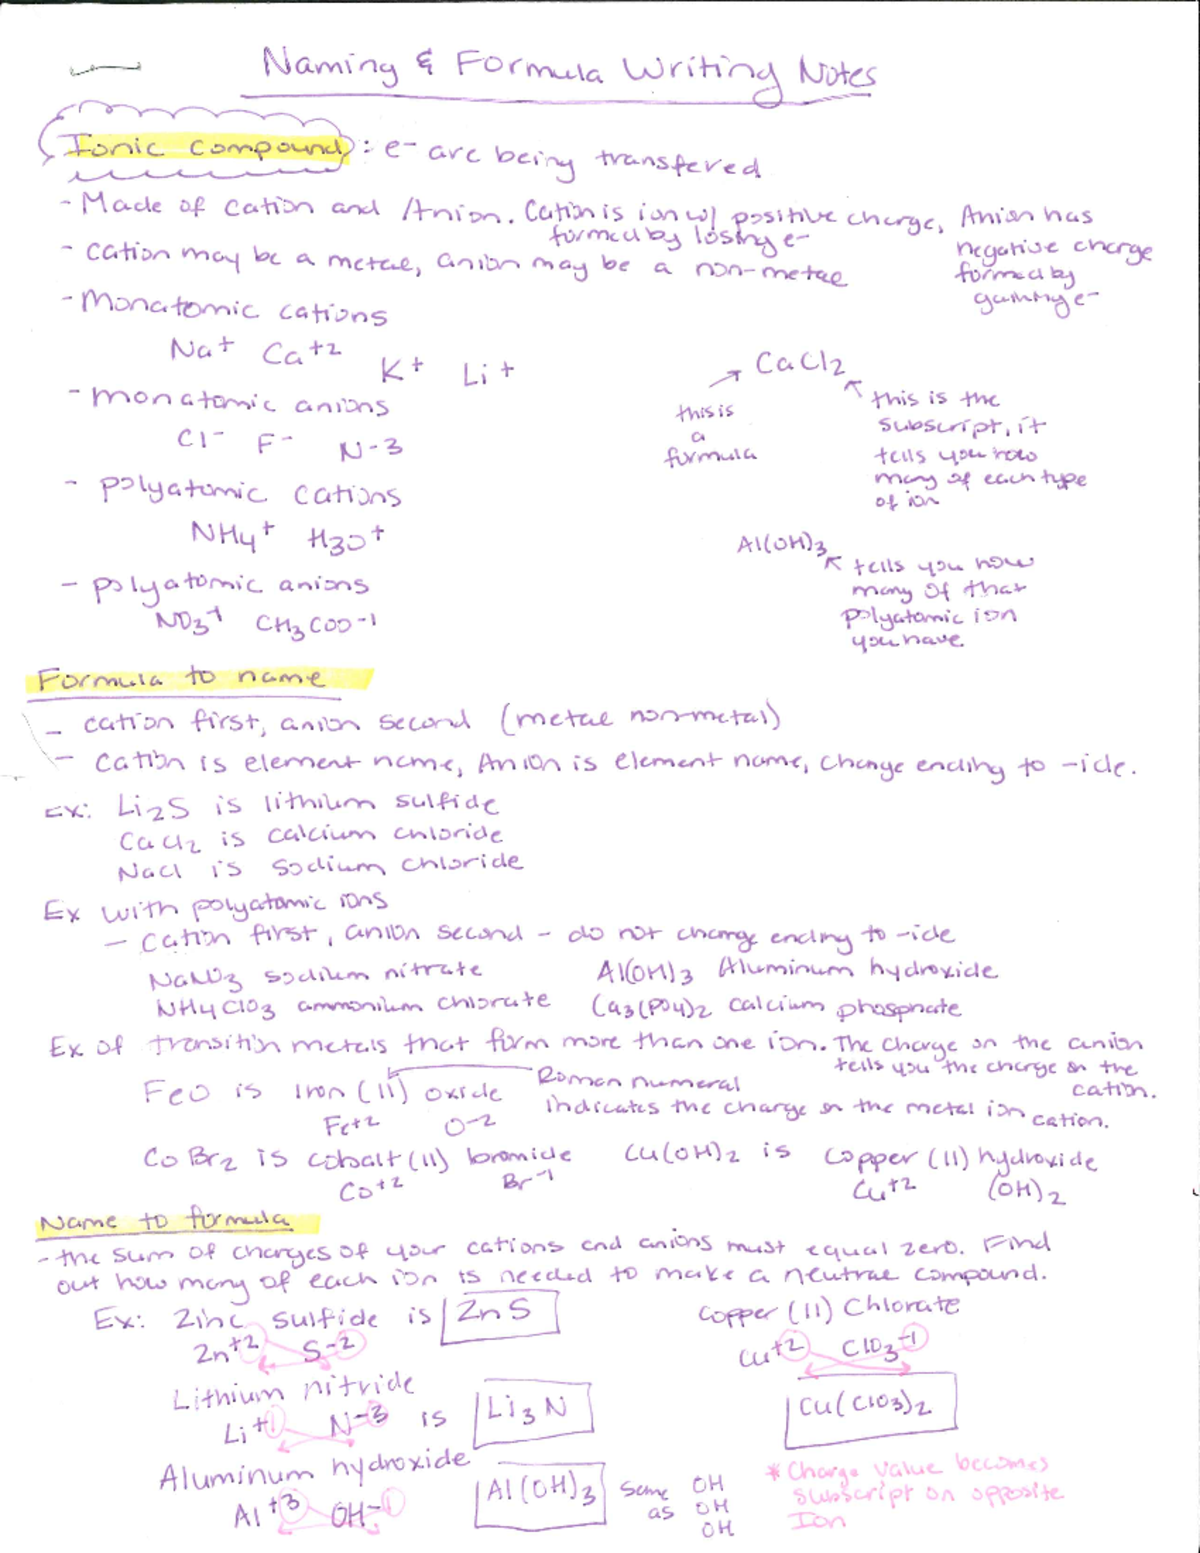 Naming & Formula Writing Notes
Ionic compound: e- are being transfered
- Made of cation and Anion. Cation is ion w/ positive charge, Anion has
formed by losing e-
negative charge
formed by
gaining e-
- cation may be a metal, anion may be a non-metal
- Monatomic cations
Na+ Ca+2 K+ Li+
- monatomic anions
Cl- F- N-3
- polyatomic cations
NH4+ H3O+
- polyatomic anions
NO3-1 CH3COO-1
CaCl2
this is
a
formula
this is the
subscript, it
tells you how
many of each type
of ion
Al(OH)3
tells you how
many of that
polyatomic ion
you have
Formula to name
- cation first, anion second (metal non-metal)
- Cation is element name, Anion is element name, change ending to -ide.
Ex: Li2S is lithium sulfide
CaCl2 is calcium chloride
NaCl is sodium chloride
Ex with polyatomic ions
- cation first, anion second - do not change ending to -ide
NaNO3 sodium nitrate Al(OH)3 Aluminum hydroxide
NH4ClO3 ammonium chlorate Ca3(PO4)2 calcium phosphate
Ex of transition metals that form more than one ion. The charge on the anion
tells you the charge on the
cation.
FeO is Iron (II) oxide
Fe+2 O-2
Roman numeral
indicates the charge on the metal ion cation.
CoBr2 is cobalt (II) bromide Cu(OH)2 is copper (II) hydroxide
Co+2 Br-1 Cu+2 (OH)2
Name to formula
- the sum of charges of your cations and anions must equal zero. Find
out how many of each ion is needed to make a neutral compound.
Ex: Zinc sulfide is ZnS
Zn+2 S-2
Copper (II) Chlorate
Cu+2 ClO3-1
Cu(ClO3)2
Lithium nitride
Li+1 N-3 is Li3N
Aluminum hydroxide
Al+3 OH-1 Al(OH)3
same as OH
OH
OH
* Charge value becomes
subscript on opposite
Ion